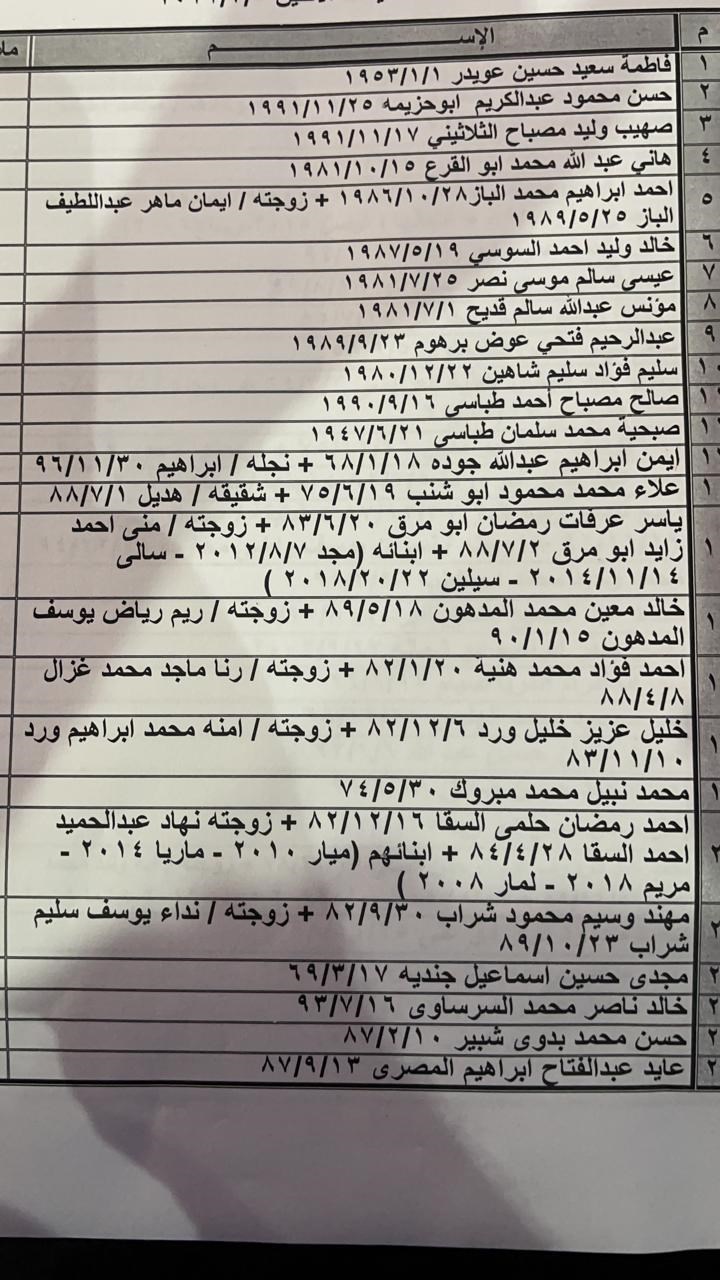 م الإســــم
١ فاطمة سعيد حسين عويدر ١٩٥٣/١/١
٢ حسن محمود عبدالكريم ابوحزيمه ١٩٩١/١١/٢٥
٣ صهيب وليد مصباح الثلاثيني ١٩٩١/١١/١٧
٤ هاني عبد الله محمد ابو القرع ١٩٨١/١٠/١٥
٥ احمد ابراهيم محمد الباز١٩٨٦/١٠/٢٨ + زوجته / ايمان ماهر عبداللطيف
الباز ١٩٨٩/٥/٢٥
٦ خالد وليد احمد السوسي ١٩٨٧/٥/١٩
٧ عيسى سالم موسى نصر ١٩٨١/٧/٢٥
٨ مؤنس عبدالله سالم قديح ١٩٨١/٧/١
٩ عبدالرحيم فتحي عوض برهوم ١٩٨٩/٩/٢٣
سليم فؤاد سليم شاهين ١٩٨٠/١٢/٢٢
صالح مصباح أحمد طباسى ١٩٩٠/٩/١٦
صبحية محمد سلمان طباسى ١٩٤٧/٦/٢١
ايمن ابراهيم عبدالله جوده ٦٨/١/١٨ + نجله / ابراهيم ٩٦/١١/٣٠
علاء محمد محمود ابو شنب ٧٥/٦/١٩ + شقيقه / هديل ٨٨/٧/١
ياسر عرفات رمضان ابو مرق ٨٣/٦/٢٠ + زوجته / منى احمد
زايد ابو مرق ٨٨/٧/٢ + ابنائه (مجد ٢٠١٢/٨/٧ - سالى
٢٠١٤/١١/١٤ - سيلين ٢٠١٨/٢٠/٢٢ )
خالد معين محمد المدهون ٨٩/٥/١٨ + زوجته / ريم رياض يوسف
المدهون ٩٠/١/١٥
احمد فؤاد محمد هنية ٨٢/١/٢٠ + زوجته / رنا ماجد محمد غزال
٨٨/٤/٨
خليل عزيز خليل ورد ٨٢/١٢/٦ + زوجته / امنه محمد ابراهيم ورد
٨٣/١١/١٠
محمد نبيل محمد مبروك ٧٤/٥/٣٠
احمد رمضان حلمى السقا ٨٢/١٢/١٦ + زوجته نهاد عبدالحميد
احمد السقا ٨٤/٤/٢٨ + ابنائهم (ميار ٢٠١٠ - ماريا ٢٠١٤ -
مريم ٢٠١٨ - لمار ٢٠٠٨ )
مهند وسيم محمود شراب ٨٢/٩/٣٠ + زوجته / نداء يوسف سليم
شراب ٨٩/١٠/٢٣
مجدى حسين اسماعيل جنديه ٦٩/٣/١٧
خالد ناصر محمد السرساوى ٩٣/٧/١٦
حسن محمد بدوى شبير ٨٧/٢/١٠
عايد عبدالفتاح ابراهيم المصرى ٨٧/٩/١٣